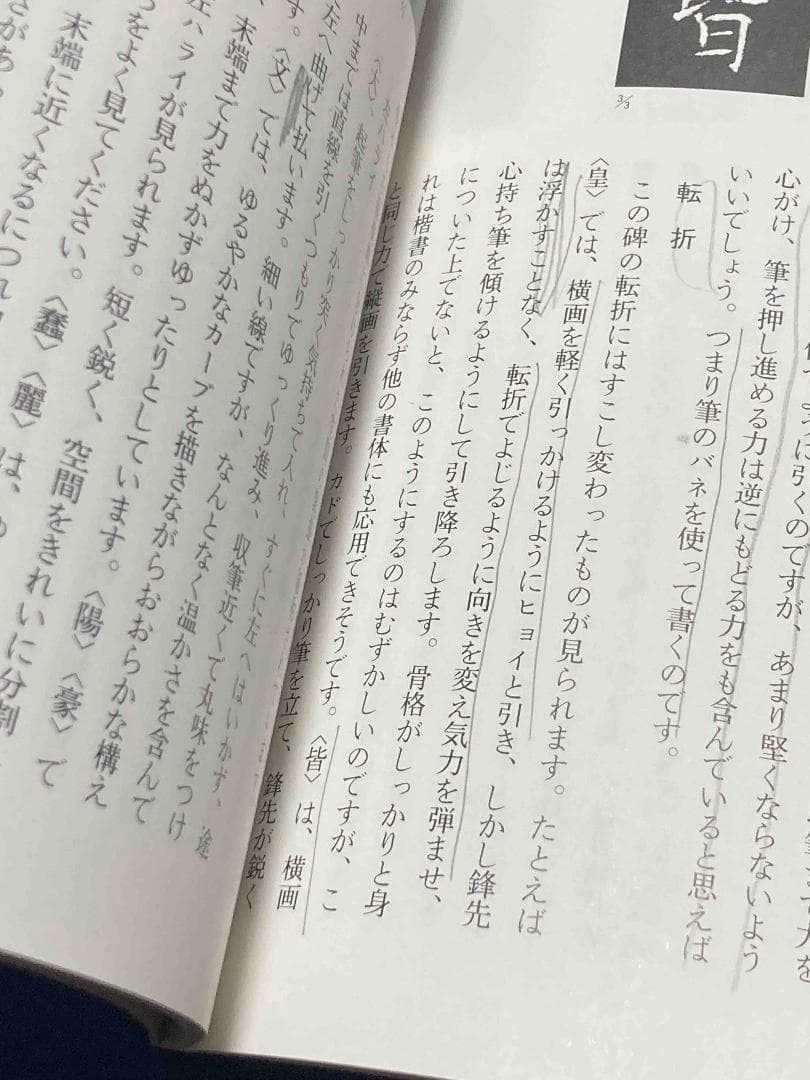 皆
3/3
に引くのですが、
心がけ、筆を押し進める力は逆にもどる力をも含んでいると思えば
いいでしょう。つまり筆のバネを使って書くのです。
転折
この碑の転折にはすこし変わったものが見られます。たとえば
〈皇〉では、横画を軽く引っかけるようにヒョイと引き、しかし鋒先
は浮かすことなく、転折でよじるように向きを変え気力を弾ませ、
心持ち筆を傾けるようにして引き降ろします。骨格がしっかりと身
についた上でないと、このようにするのはむずかしいのですが、こ
れは楷書のみならず他の書体にも応用できそうです。〈皆〉は、横画
と同じ力で縦画を引きます。カドでしっかり筆を立て、鋒先が鋭く
起筆をしっかり突く気持ちで入れ、すぐに左へはいかず、途
中までは直線を引くつもりでゆっくり進み、収筆近くで丸味をつけ
左へ曲げて払います。細い線ですが、なんとなく温かさを含んで
す。〈文〉では、ゆるやかなカーブを描きながらおおらかな構え
、末端まで力をぬかずゆったりとしています。〈陽〉〈豪〉で
左ハライが見られます。短く鋭く、空間をきれいに分割
をよく見てください。〈蠢〉〈麗〉は、
末端に近くなるにつれ